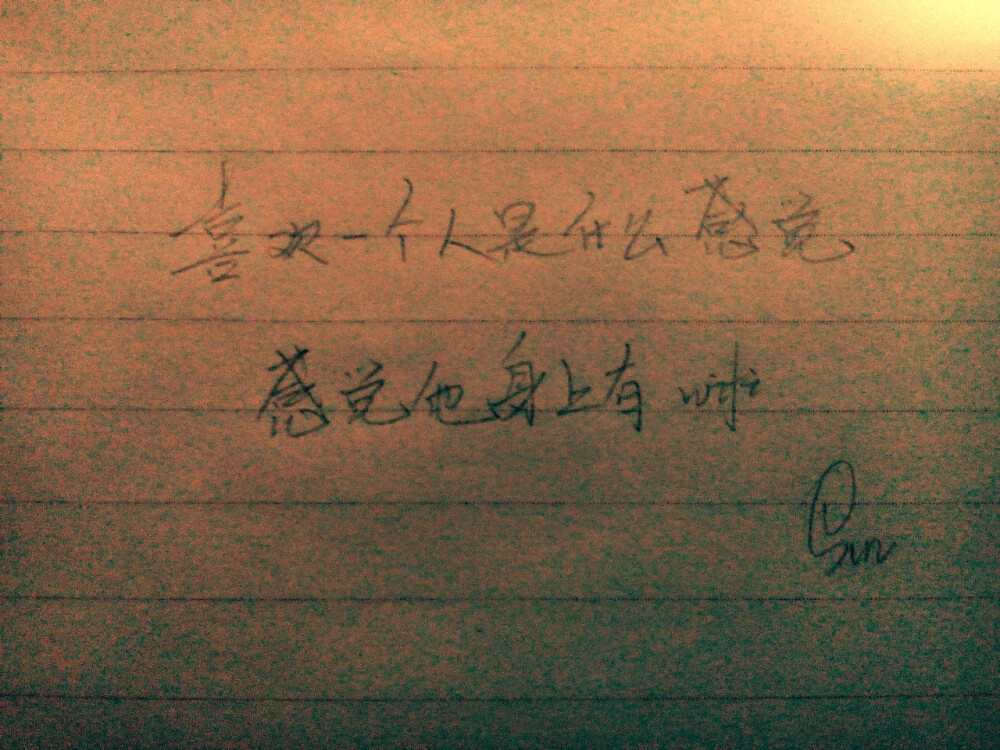 喜欢一个人是什么感觉
感觉他身上有wifi